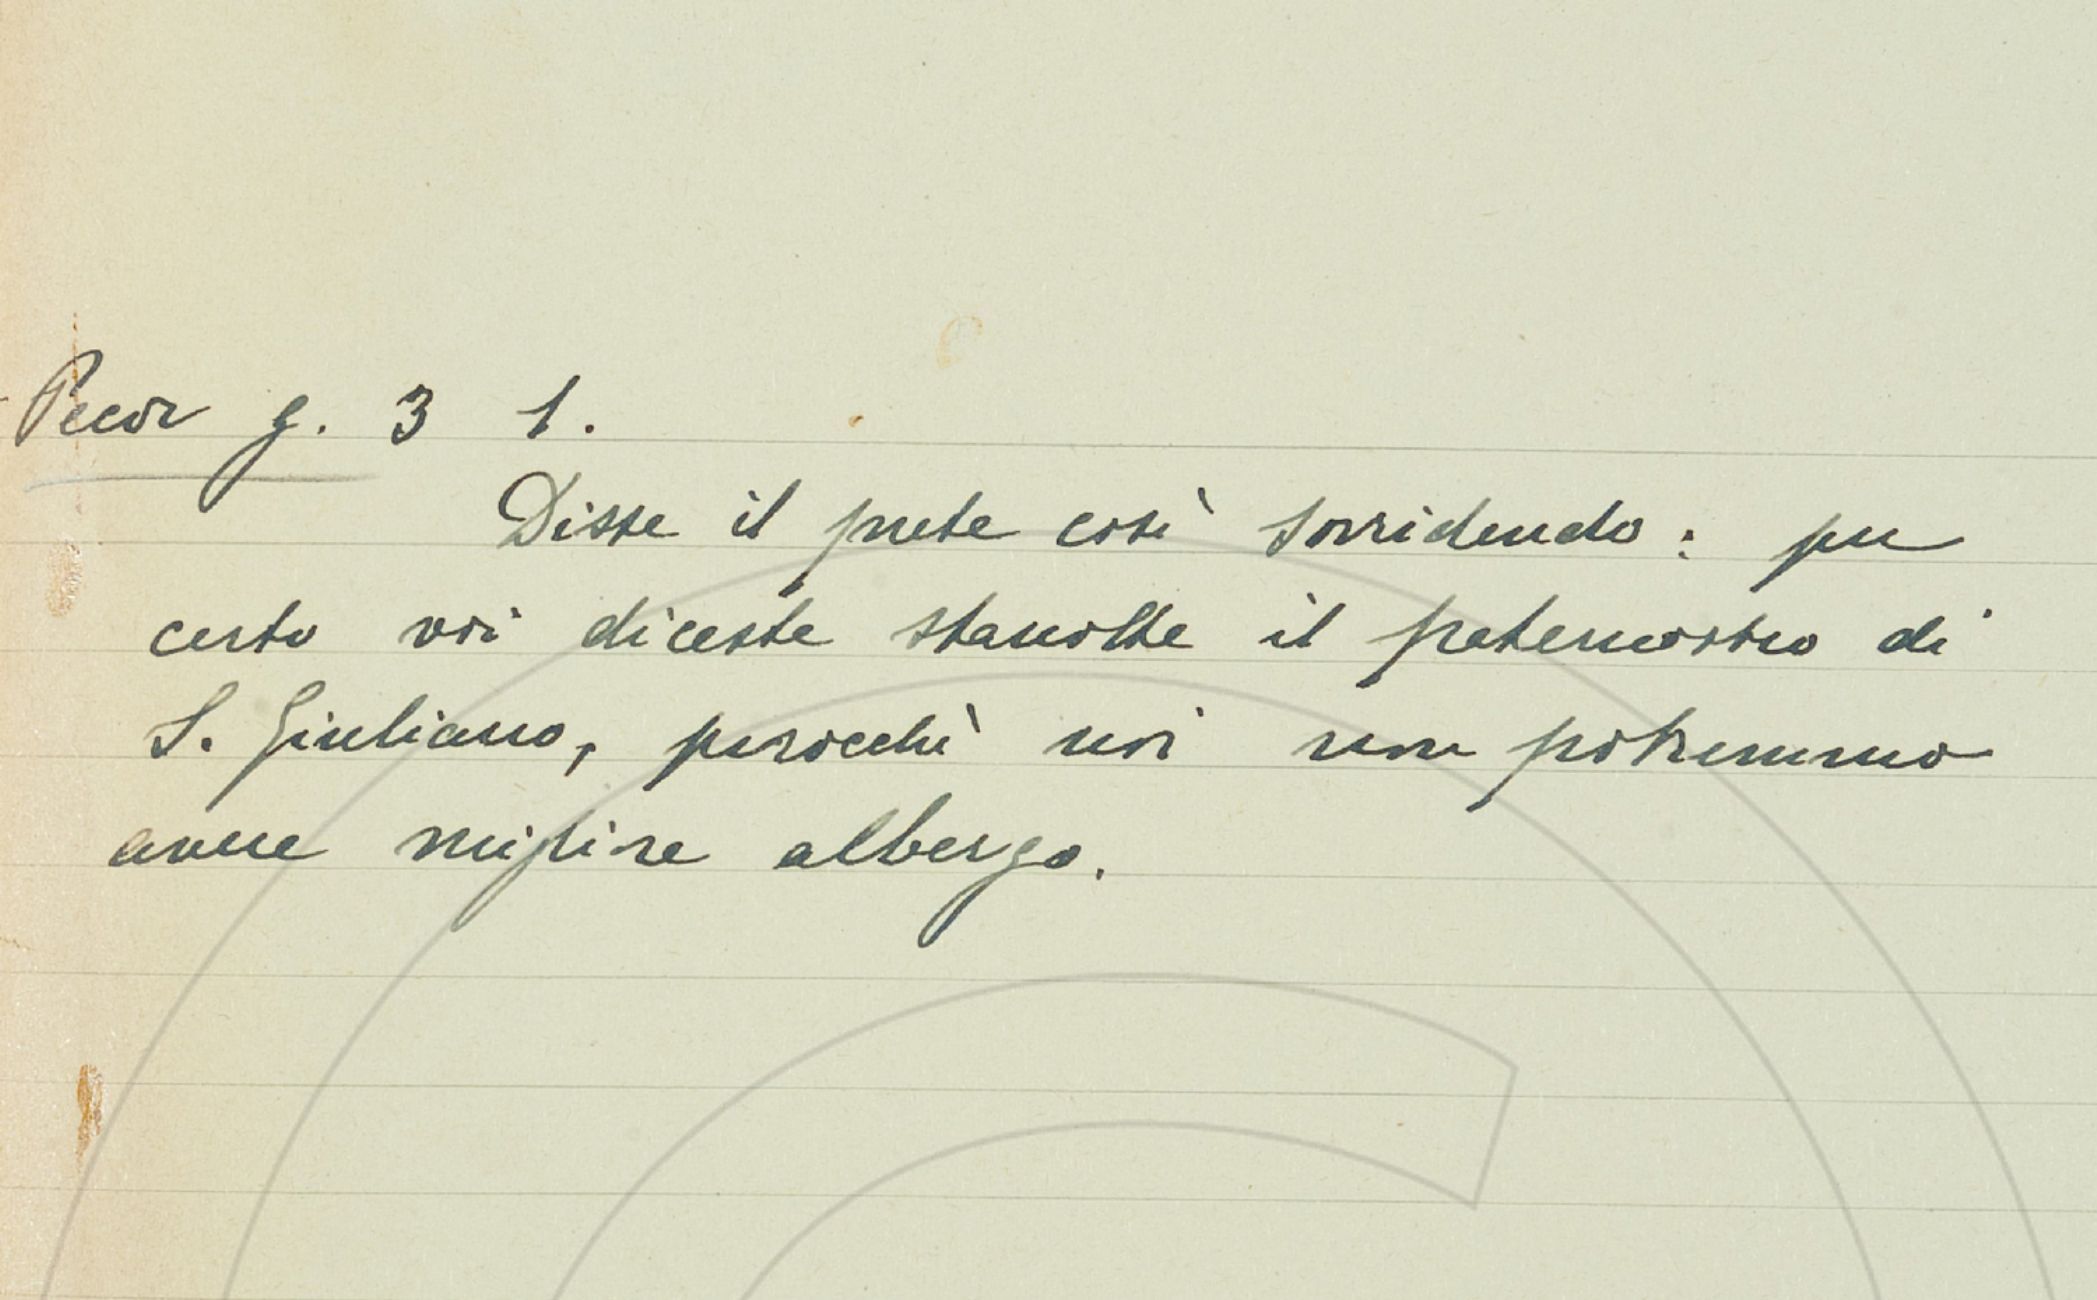 Pecor g. 3 1.
Disse il prete così sorridendo: per
certo voi diceste stanotte il paternostro di
S. Giuliano, perocchè noi non potremmo
avere migliore albergo.